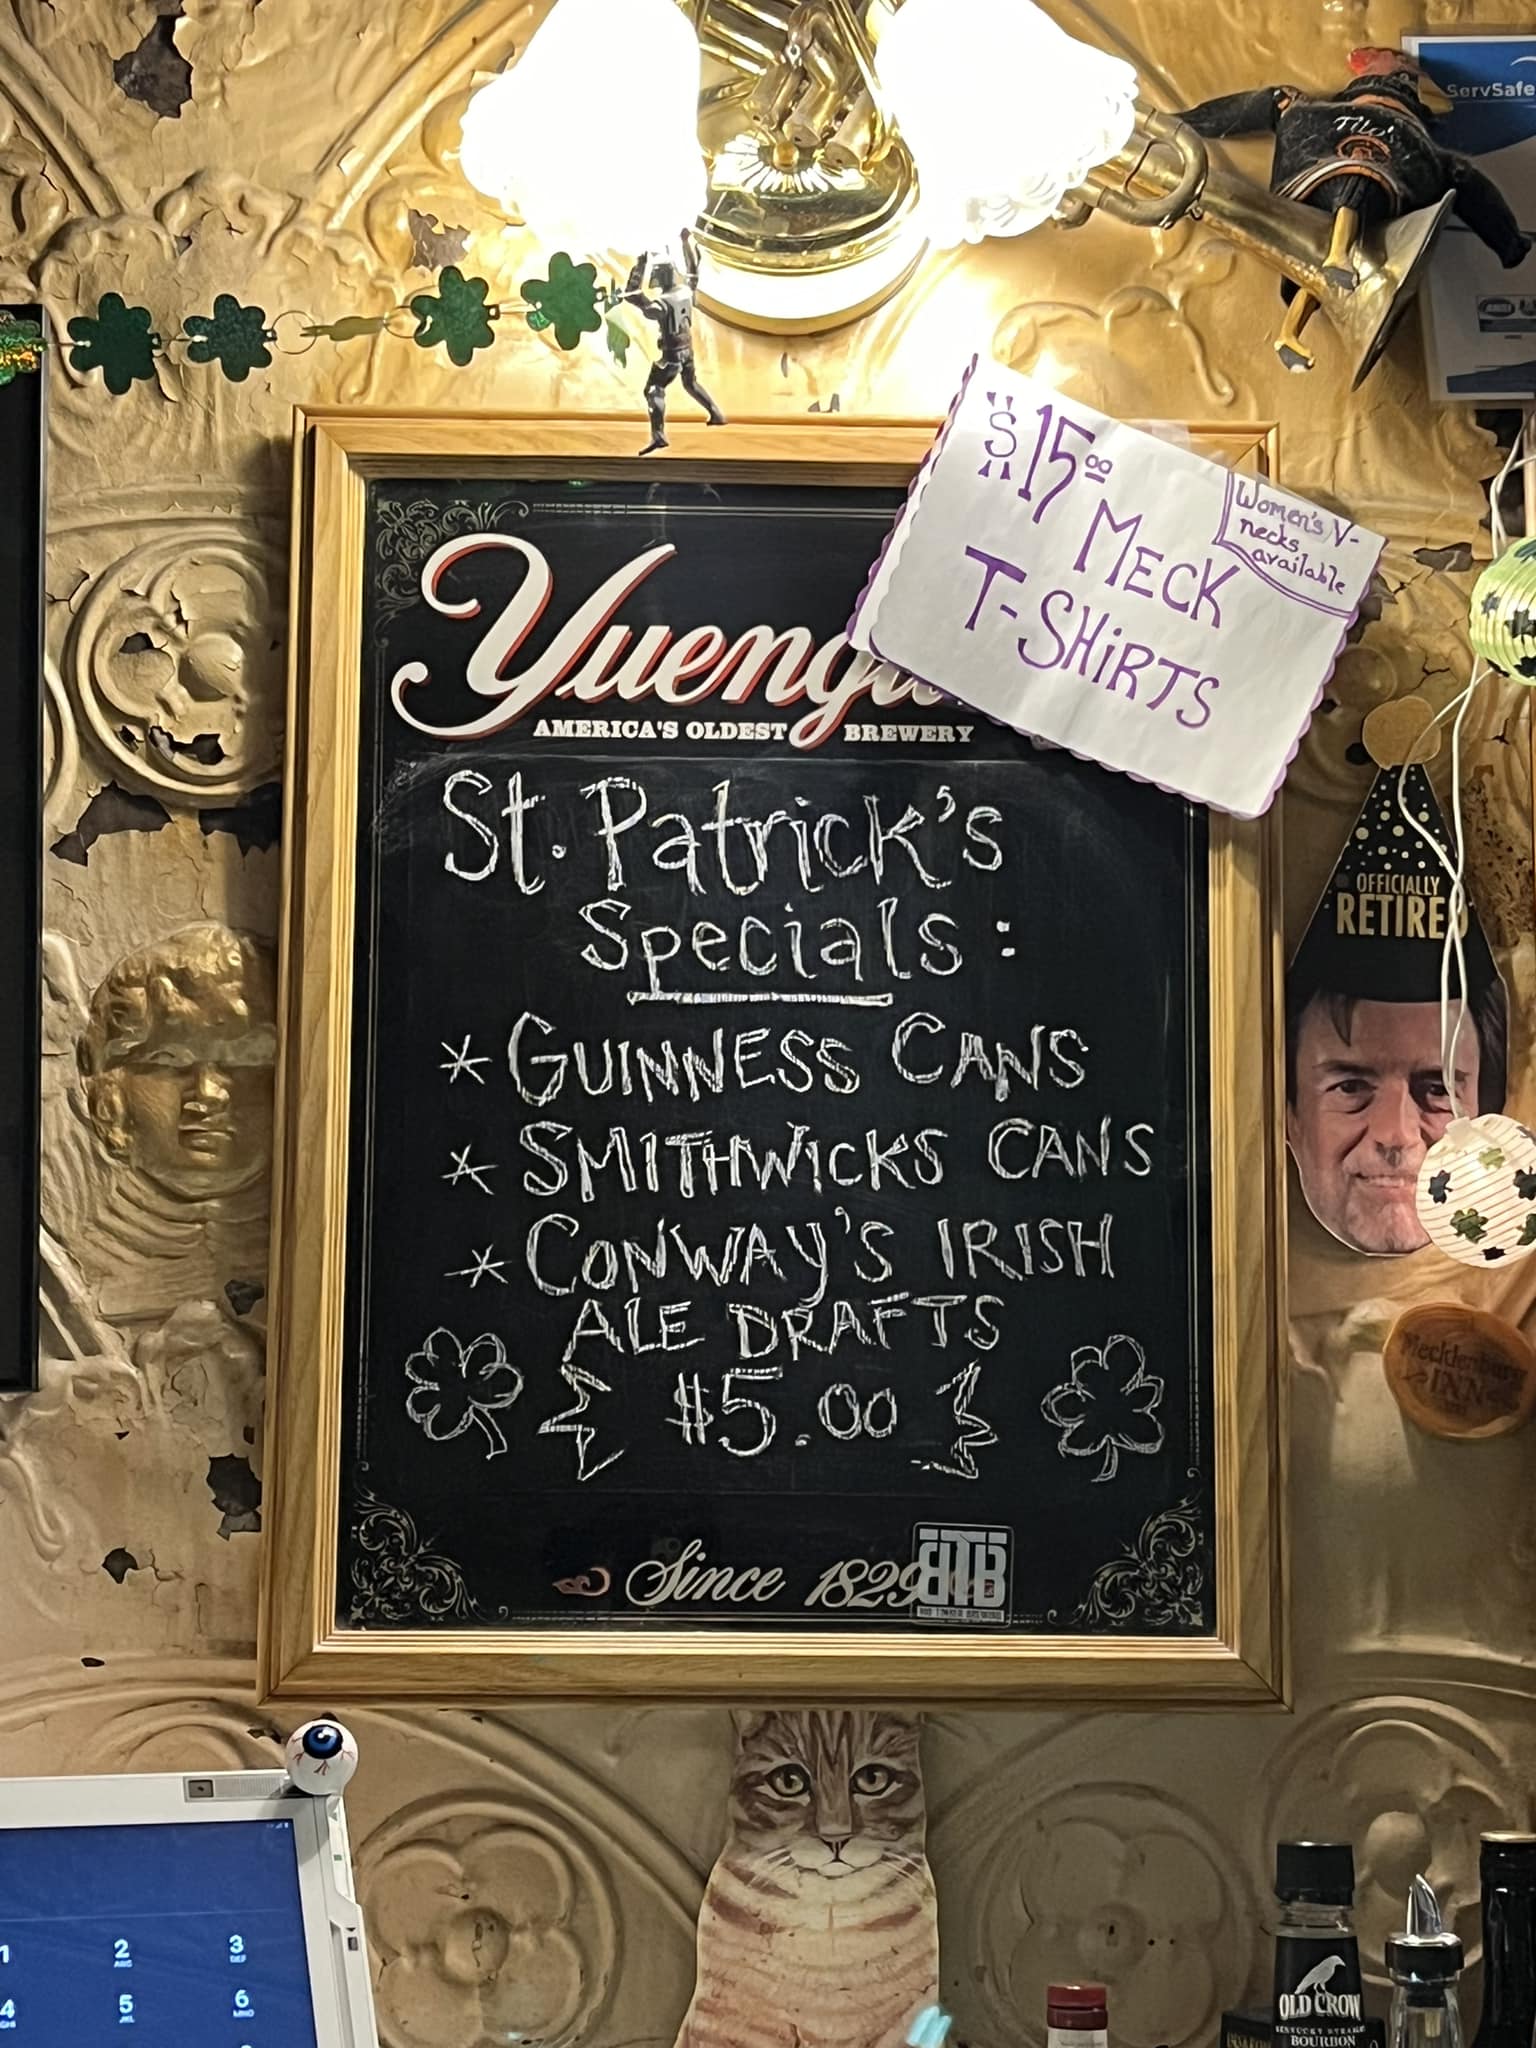 ServSafe
Tito's
$15.00
MECK
T-SHIRTS
Women's V-
necks
available
AMERICA'S OLDEST BREWERY
St. Patrick's
Specials:
* GUINNESS CANS
* SMITHWICKS CANS
* CONWAY'S IRISH
ALE DRAFTS
$5.00
Since 1829
BTB
OFFICIALLY
RETIRED
Mecklenburg
INN
1
2
ABC
3
DEF
4
GHI
5
JKL
6
MNO
OLD CROW
KENTUCKY STRAIGHT
BOURBON